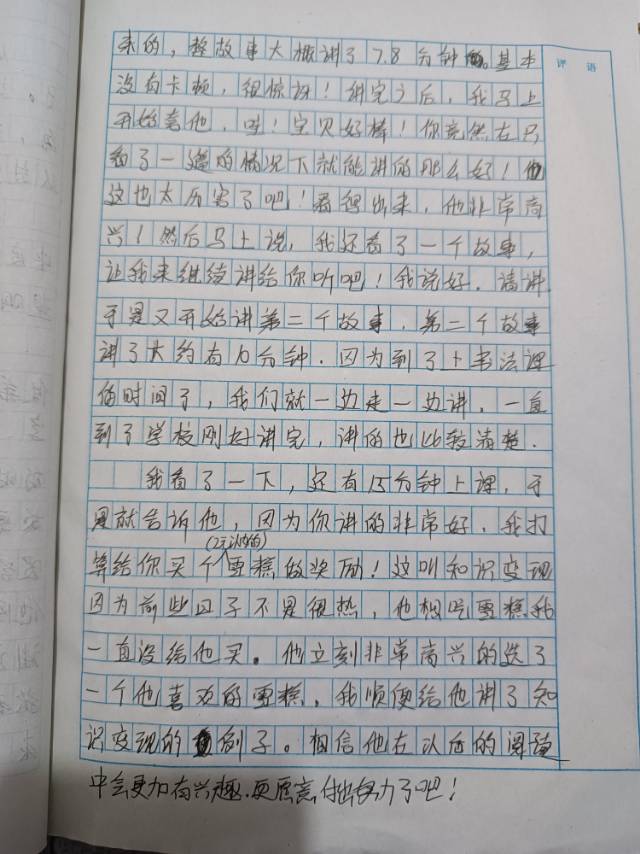 来的，整故事大概讲了7.8分钟。基本
评 语
没有卡顿，很惊讶！讲完之后，我马上
开始夸他，哇！宝贝好棒！你竟然在只
看了一遍的情况下就能讲的那么好！
这也太厉害了吧！看得出来，他非常高
兴！然后马上说，我还看了一个故事，
让我来继续讲给你听吧！我说好。请讲
于是又开始讲第二个故事．第二个故事
讲了大约有10分钟．因为到了上书法课
的时间了，我们就一边走一边讲．一直
到了学校刚好讲完，讲的也比较清楚．
我看了一下，还有15分钟上课．于
是就告诉他，因为你讲的非常好．我打
(2元以内的)
算给你买个雪糕做奖励！这叫知识变现
因为前些日子不是很热，他想吃雪糕我
一直没给他买。他立刻非常高兴的选了
一个他喜欢的雪糕．我顺便给他讲了知
识变现的例子。相信他在以后的阅读
中会更加有兴趣．更愿意付出努力了吧！